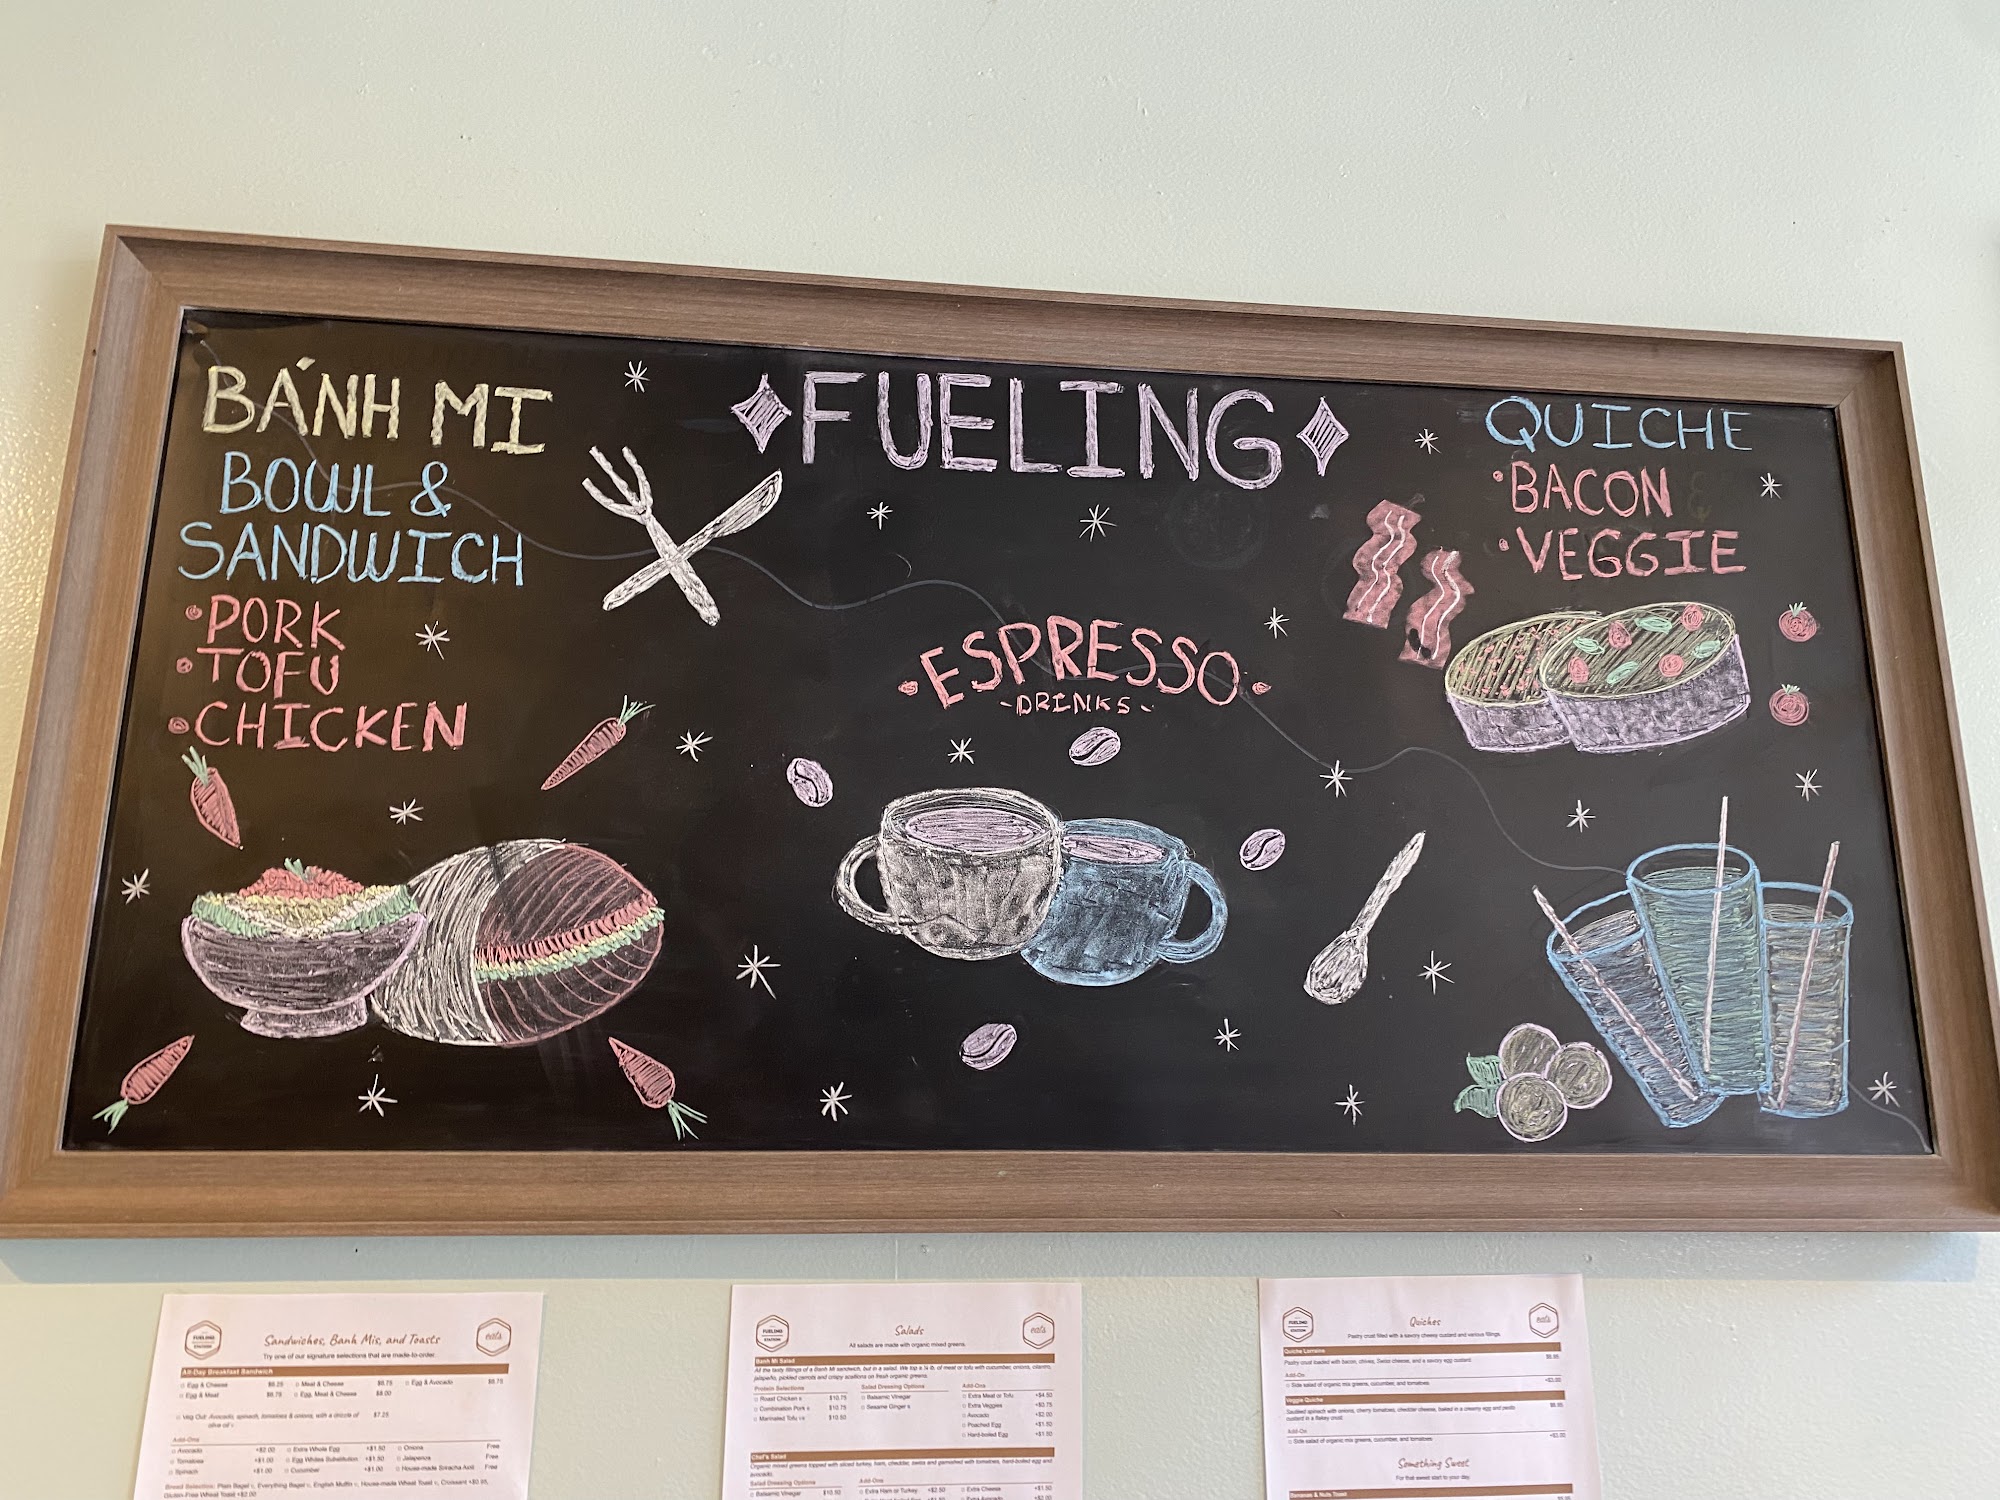 BÁNH MI
BOWL &
SANDWICH
•PORK
•TOFU
•CHICKEN
FUELING
•ESPRESSO•
-DRINKS-
QUICHE
•BACON
•VEGGIE
FUELING
STATION
Sandwiches, Banh Mis, and Toasts
eats
Try one of our signature selections that are made-to-order.
All-Day Breakfast Sandwich
Egg & Cheese $6.25 Meat & Cheese $6.75 Egg & Avocado $6.75
Egg & Meat $6.75 Egg, Meat & Cheese $8.00
Veg Out: Avocado, spinach, tomatoes & onions, with a drizzle of $7.25
olive oil
Add-Ons
Avocado +$2.00 Extra Whole Egg +$1.50 Onions Free
Tomatoes +$1.00 Egg Whites Substitution +$1.50 Jalapenos Free
Spinach +$1.00 Cucumber +$1.00 House-made Sriracha Aioli Free
Bread Selection: Plain Bagel, Everything Bagel, English Muffin, House-made Wheat Toast, Croissant +$0.95,
Gluten-Free Wheat Toast +$2.00
FUELING
STATION
Salads
eats
All salads are made with organic mixed greens.
Banh Mi Salad
All the tasty fillings of a Banh Mi sandwich, but in a salad. We top a ¼ lb. of meat or tofu with cucumber, onions, cilantro,
jalapeño, pickled carrots and crispy scallions on fresh organic greens.
Protein Selections Salad Dressing Options Add-Ons
Roast Chicken $10.75 Balsamic Vinegar Extra Meat or Tofu +$4.50
Combination Pork $10.75 Sesame Ginger Extra Veggies +$0.75
Marinated Tofu $10.50 Avocado +$2.00
Poached Egg +$1.50
Hard-boiled Egg +$1.50
Chef's Salad
Organic mixed greens topped with sliced turkey, ham, cheddar, swiss and garnished with tomatoes, hard-boiled egg and
avocado.
Salad Dressing Options Add-Ons
Balsamic Vinegar $10.50 Extra Ham or Turkey +$2.50 Extra Cheese +$1.50
Extra Avocado +$2.00
FUELING
STATION
Quiches
eats
Pastry crust filled with a savory cheesy custard and various fillings.
Quiche Lorraine
Pastry crust loaded with bacon, chives, Swiss cheese, and a savory egg custard
Add-On
Side salad of organic mix greens, cucumber, and tomatoes +$3.00
Veggie Quiche
Sautéed spinach with onions, cherry tomatoes, cheddar cheese, baked in a creamy egg and pesto
custard in a flakey crust.
Add-On
Side salad of organic mix greens, cucumber, and tomatoes +$3.00
Something Sweet
For that sweet start to your day.
Bananas & Nuts Toast